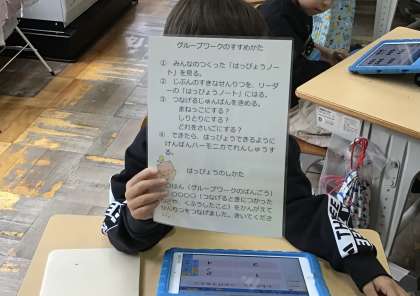 グループワークのすすめかた
① みんなのつくった「はっぴょうノー
ト」を見る。
② じぶんのすきなせんりつを、リーダ
ーの「はっぴょうノート」にはる。
③ つなげるじゅんばんをきめる。
まねっこにする？
しりとりにする？
どれをさいごにする？
④ できたら、はっぴょうできるように
けんばんハーモニカでれんしゅうす
る。
はっぴょうのしかた
はん（グループワークのばんごう）
〇〇〇〇（つなげるときにつかった
くふうしたこと）をかんがえて
せんりつをつなげました。きいてくださ